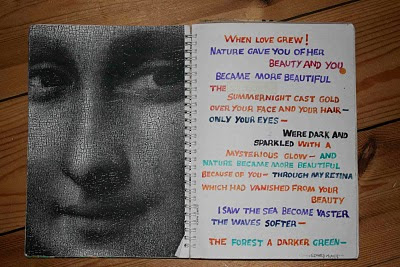 WHEN LOVE GREW!
NATURE GAVE YOU OF HER
BEAUTY AND YOU
BECAME MORE BEAUTIFUL
THE
SUMMERNIGHT CAST GOLD
OVER YOUR FACE AND YOUR HAIR—
ONLY YOUR EYES—
WERE DARK AND
SPARKLED WITH A
MYSTERIOUS GLOW—AND
NATURE BECAME MORE BEAUTIFUL
BECAUSE OF YOU—THROUGH MY RETINA
WHICH HAD VANISHED FROM YOUR
BEAUTY
I SAW THE SEA BECOME VASTER
THE WAVES SOFTER—
THE FOREST A DARKER GREEN—